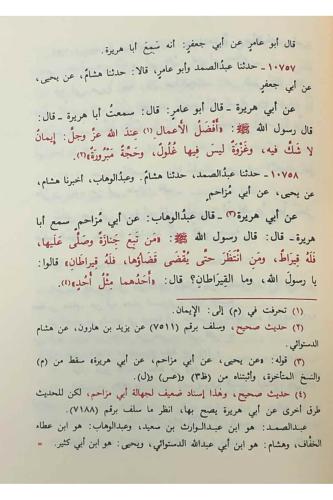 قال أبو عامر عن أبي جعفر: أنه سَمِعَ أبا هريرة.
١٠٧٥٧ـ حدثنا عبدالصمد وأبو عامر، قالا: حدثنا هشام، عن يحيى،
عن أبي جعفرٍ
عن أبي هريرة ـ قال أبو عامر: قال: سمعتُ أبا هريرة ـ قال:
قال رسول الله ﷺ: «أَفْضَلُ الأعمال (١) عِنْدَ الله عزَّ وجلَّ: إيمانٌ
لا شكَّ فيه، وغَزْوَةٌ ليس فيها غُلُولٌ، وحَجَّةٌ مَبْرُورَةٌ»(٢).
١٠٧٥٨ـ حدثنا عبدالصمد، حدثنا هشامٌ. وعبدُالوهاب، أخبرنا هشام،
عن يحيى، عن أبي مُزاحم
عن أبي هريرة(٣) ـ قال عبدالوهاب: عن أبي مزاحم سمع أبا
هريرة ـ قال: قال رسول الله ﷺ: «مَن تَبِعَ جَنازةً وصلَّى عليها،
فلَهُ قِيراطٌ، ومَنِ انْتَظَرَ حتَّى يُقْضَى قَضاؤها، فلَهُ قِيراطَانِ» قالوا:
يا رسولَ الله، وما القِيراطَانِ؟ قال: «أَحَدُهما مِثْلُ أُحُدٍ»(٤).
(١) تحرفت في (م) إلى: الإيمان.
(٢) حديث صحيح، وسلف برقم (٧٥١١) عن يزيد بن هارون، عن هشام
الدستوائي.
(٣) قوله: «عن يحيى، عن أبي مزاحم، عن أبي هريرة» سقط من (م)
والنسخ المتأخرة، وأثبتناه من (ظ٣) و(عس) و(ل).
(٤) حديث صحيح، وهذا إسناد ضعيف لجهالة أبي مزاحم، لكن للحديث
طرق أخرى عن أبي هريرة يصح بها، انظر ما سلف برقم (٧١٨٨).
عبدالصمد: هو ابن عبدالوارث بن سعيد، وعبدالوهاب: هو ابن عطاء
الخفَّاف، وهشام: هو ابن أبي عبدالله الدستوائي، ويحيى: هو ابن أبي كثير. =